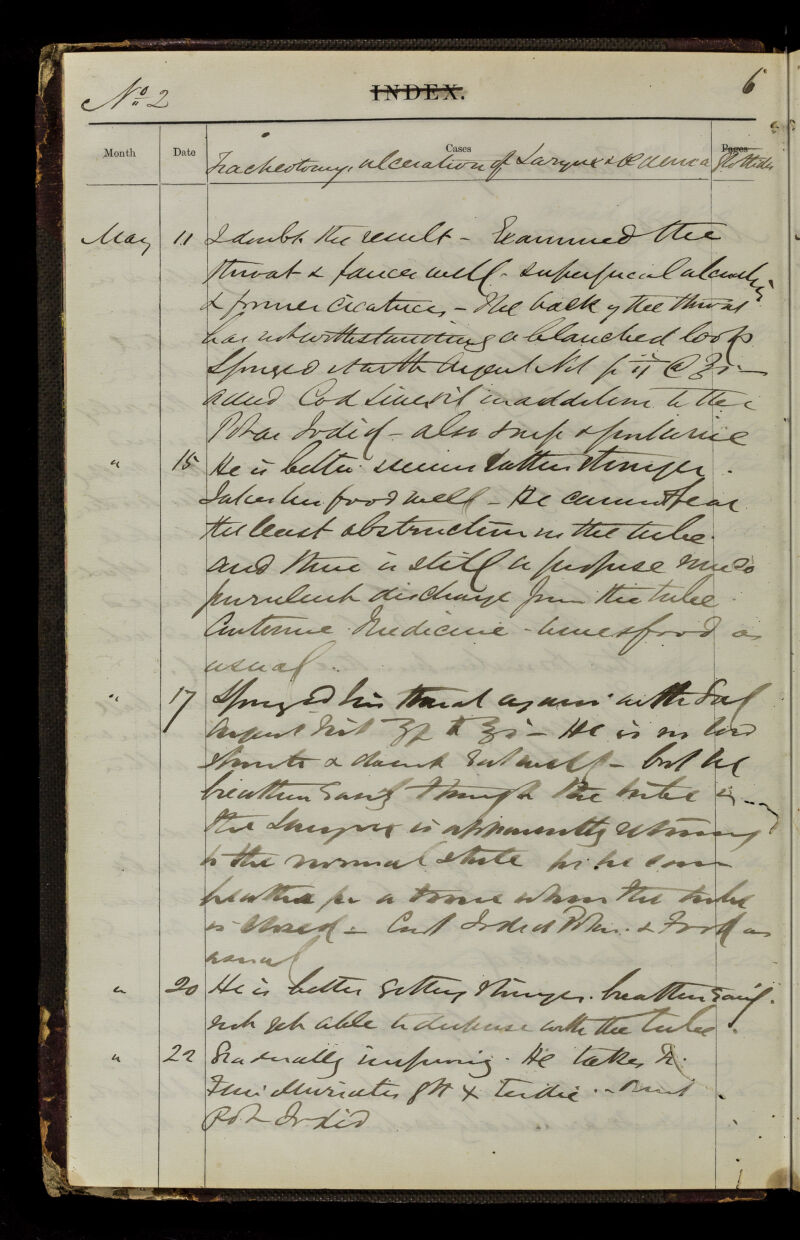 No 2 INDEX. 6
Month Date Cases Pages
Tracheotomy, ulceration of Larynx & Œdema Glottidis
May 11 I doubt the result - Examined the
throat & fauces well - superficial ulceration
& former cicatrices - The back of the throat
has notwithstanding a blanched look
Sponged it with Argent Nit gr ii @ ℥i -
added Cod Liver Oil in addition to the
Potas Iodid - also & port wine
" 15 He is better seems stronger.
Takes his food well - He cannot bear
the least obstruction in the tube.
and there is still a profuse muco
purulent discharge from the tube.
Continue Medicine - wine & food as
usual.
" 17 Sponged his throat again with Sol
Argent Nit to ℥i - He is in good
spirits & eat well - but he
breathes easily through the tube
The Larynx is apparently returning
to the normal state for he can
breathe for a time when the tube
is closed - Cont Iodid Potas. & Food as
usual
" 20 He is better getting stronger. breathes easily.
not yet able to dispense with the tube.
" 22 Gradually improving. He takes Tr.
Ferri Muriatis gtt x ter die -
Pot Iodid